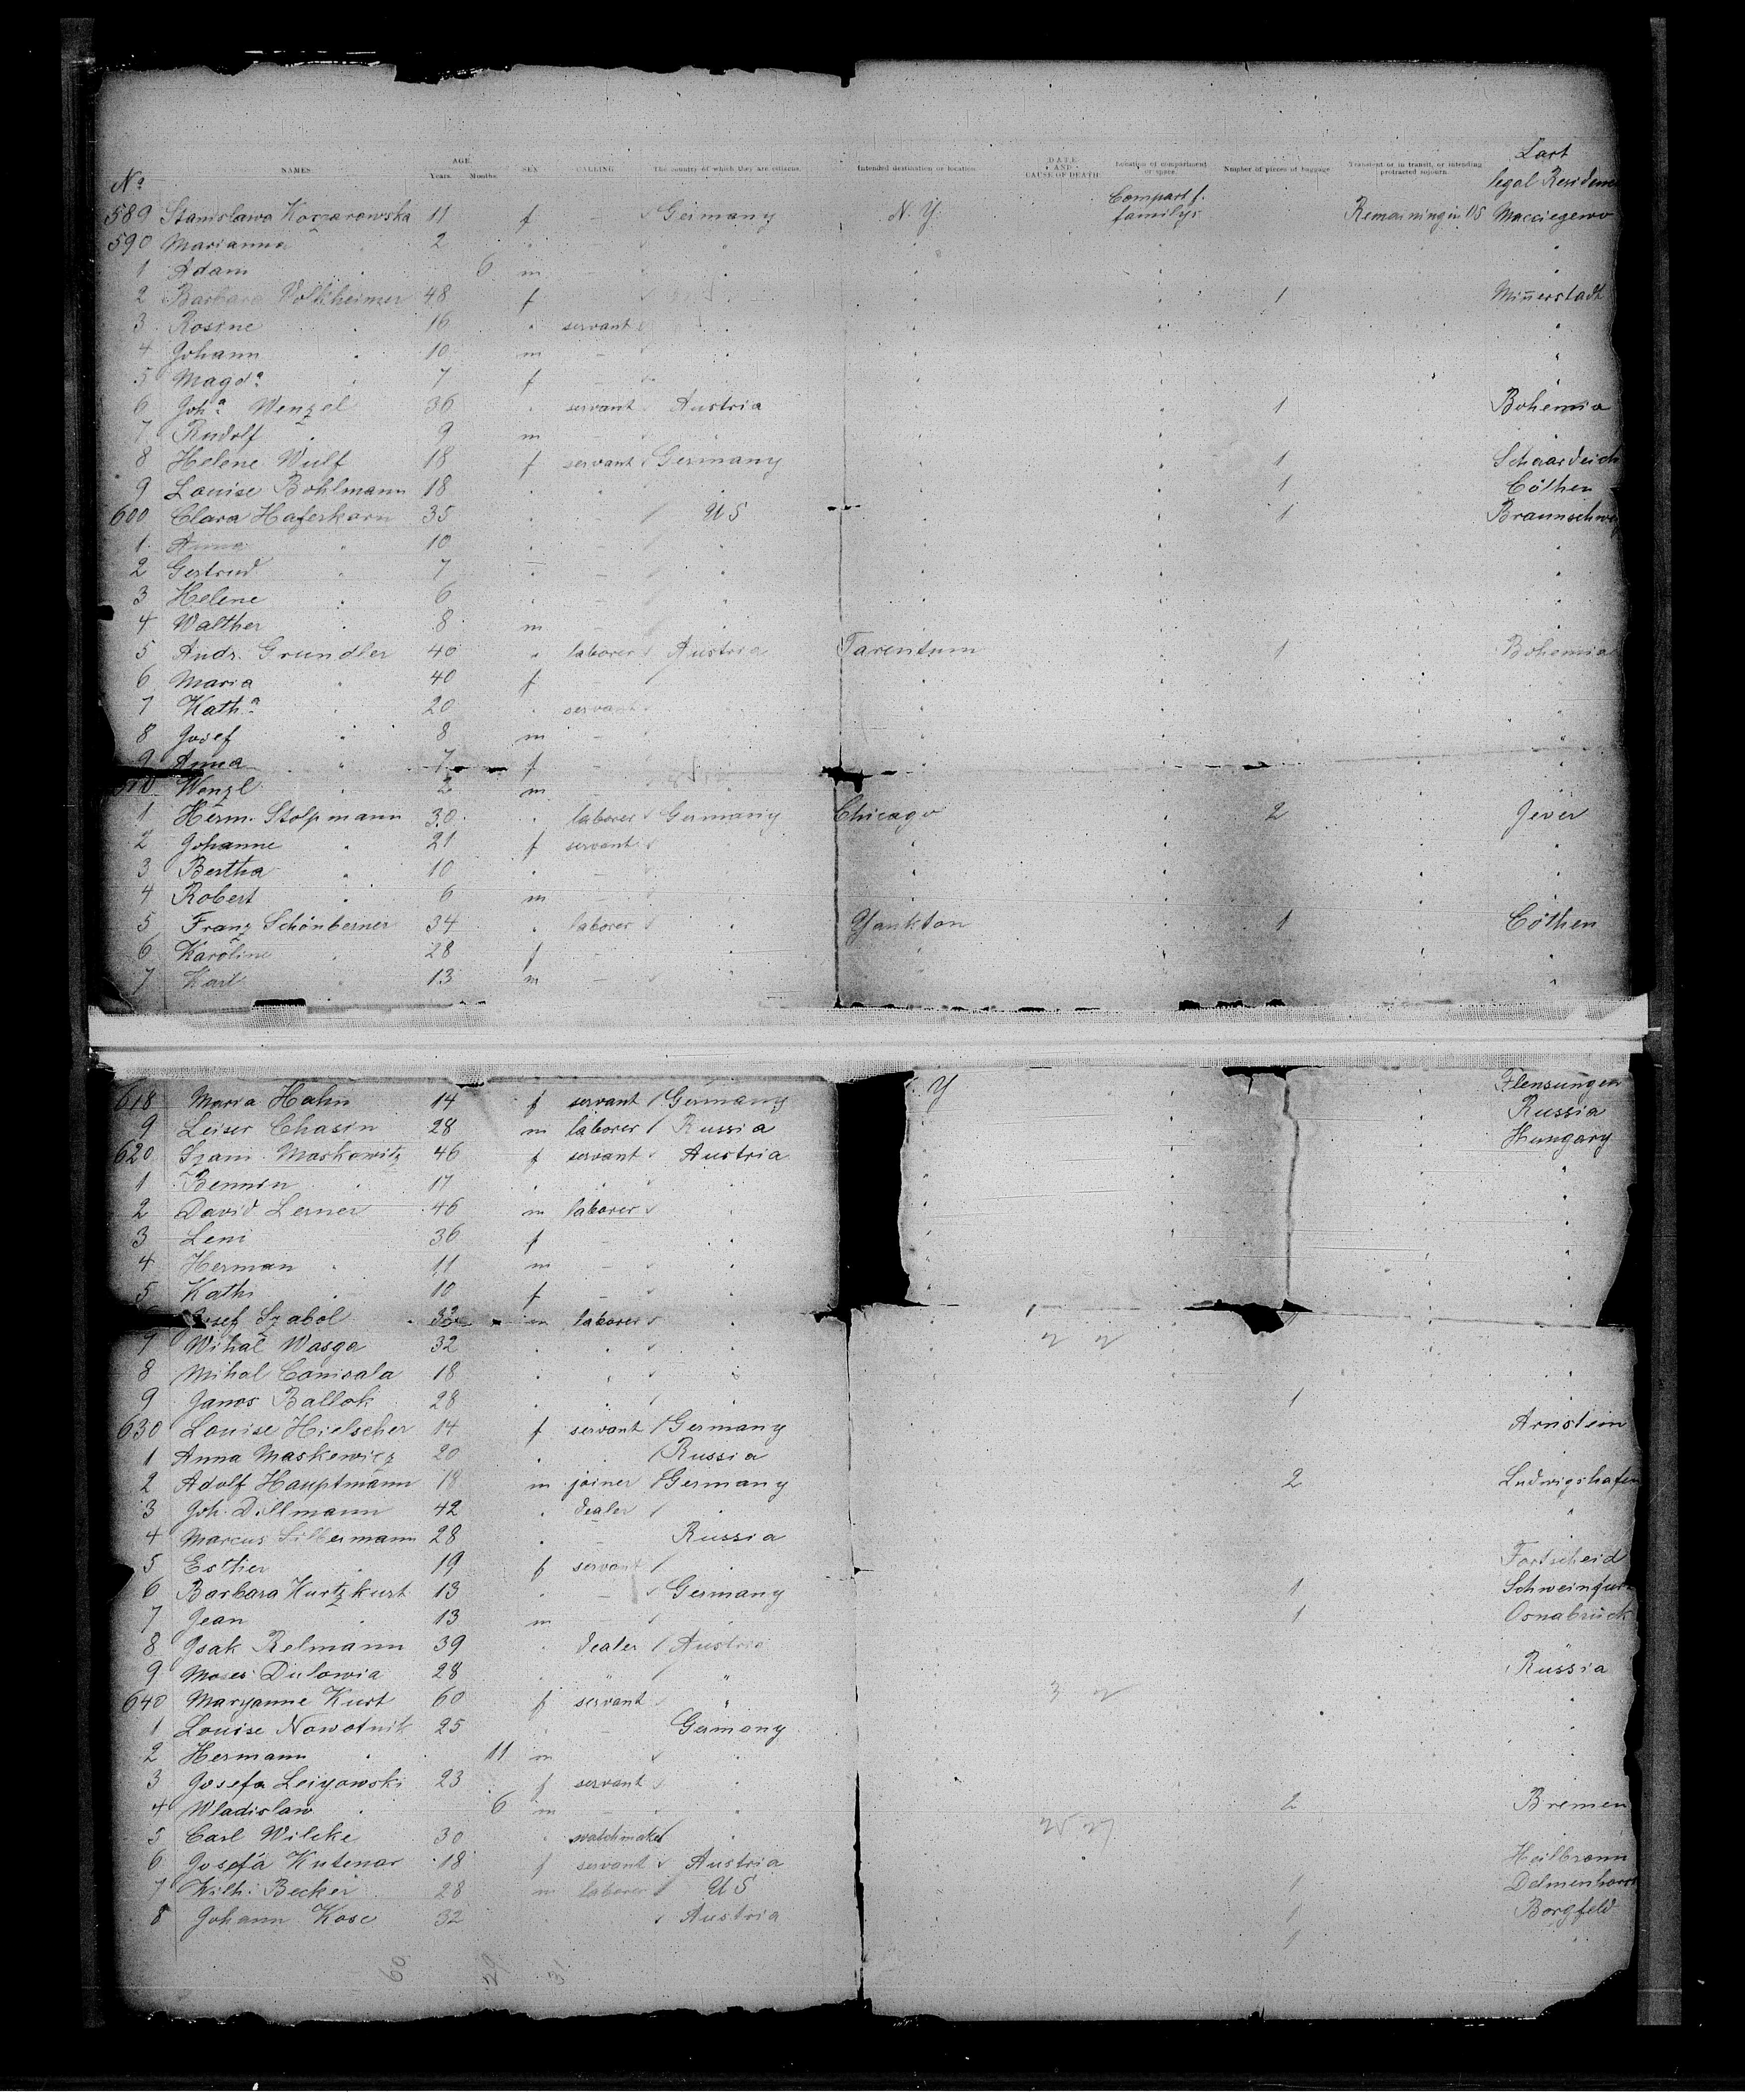 Last
legal Residence
No NAMES. AGE. Years. Months. SEX. CALLING. The country of which they are citizens. Intended destination or location. DATE AND CAUSE OF DEATH. Location of compartment or space. Number of pieces of baggage Transient or in transit, or intending protracted sojourn.
589 Stanislawa Koszarowska 11 f – Germany N. Y. Compart f. familys. Remaining in US Macciegewo
590 Marianna " 2 " "
1 Adam " 6 m – "
2 Barbara Volkheimer 48 f 1 Münerstadt
3 Rosine " 16 " servant "
4 Johann " 10 m – "
5 Magda " 7 f – "
6 Joha Wenzel 36 " servant Austria 1 Bohemia
7 Rudolf " 9 m – "
8 Helene Wulf 18 f servant Germany 1 Schaardeich
9 Louise Bohlmann 18 " " " 1 Cöthen
600 Clara Haferkorn 35 " – US 1 Braunschweig
1 Anna " 10 " – "
2 Gertrud " 7 " – " "
3 Helene " 6 " – " "
4 Walther " 8 m – "
5 Andr. Grundler 40 " laborer Austria Tarentum 1 Bohemia
6 Maria " 40 f – " "
7 Katha " 20 " servant " "
8 Josef " 8 m – " "
9 Anna " 7 f – "
610 Wenzl " 2 m "
1 Herm. Stolpmann 30 " laborer Germany Chicago 2 Jever
2 Johanne " 21 f servant " "
3 Bertha " 10 " – " "
4 Robert " 6 m – " "
5 Franz Schönberner 34 " laborer " Yankton 1 Cöthen
6 Karoline " 28 f – " "
7 Karl " 13 m – " "
618 Maria Hahn 14 f servant Germany Y Flensungen
9 Leiser Chasin 28 m laborer Russia Russia
620 Szam. Moskowitz 46 f servant Austria Hungary
1 Bennsn " 17 " " " "
2 David Lerner 46 m laborer " "
3 Leni " 36 f – " "
4 Herman " 11 m – " "
5 Kathi " 10 f – " "
Josef Szabol 32 m laborer "
7 Wihal Wasga 32 " " "
8 Mihal Comsala 18 " " " "
9 Janos Ballok 28 " " " 1 "
630 Louise Hielscher 14 f servant Germany Arnstein
1 Anna Maskewicz 20 " " Russia "
2 Adolf Hauptmann 18 m joiner Germany 2 Ludwigshafen
3 Joh. Dillmann 42 " dealer " "
4 Marcus Silbermann 28 " – Russia
5 Esther " 19 f servant " Fortscheid
6 Barbara Kurtzkurt 13 " – Germany 1 Schweinfurt
7 Jean " 13 m – " 1 Osnabrück
8 Isak Relmann 39 " dealer Austria "
9 Moses Dulowia 28 " " " Russia
640 Maryanne Kurt 60 f servant " "
1 Louise Nowotnik 25 " – Germany "
2 Hermann " 11 m " "
3 Josefa Leiyowski 23 f servant "
4 Wladislaw " 6 m – " 2 Bremen
5 Carl Wilcke 30 " watchmaker "
6 Josefa Kutenar 18 f servant Austria Heilbronn
7 Wilh. Becker 28 m laborer US 1 Delmenhorst
8 Johann Kose 32 Austria 1 Borgfeld
1 "
60 29 31